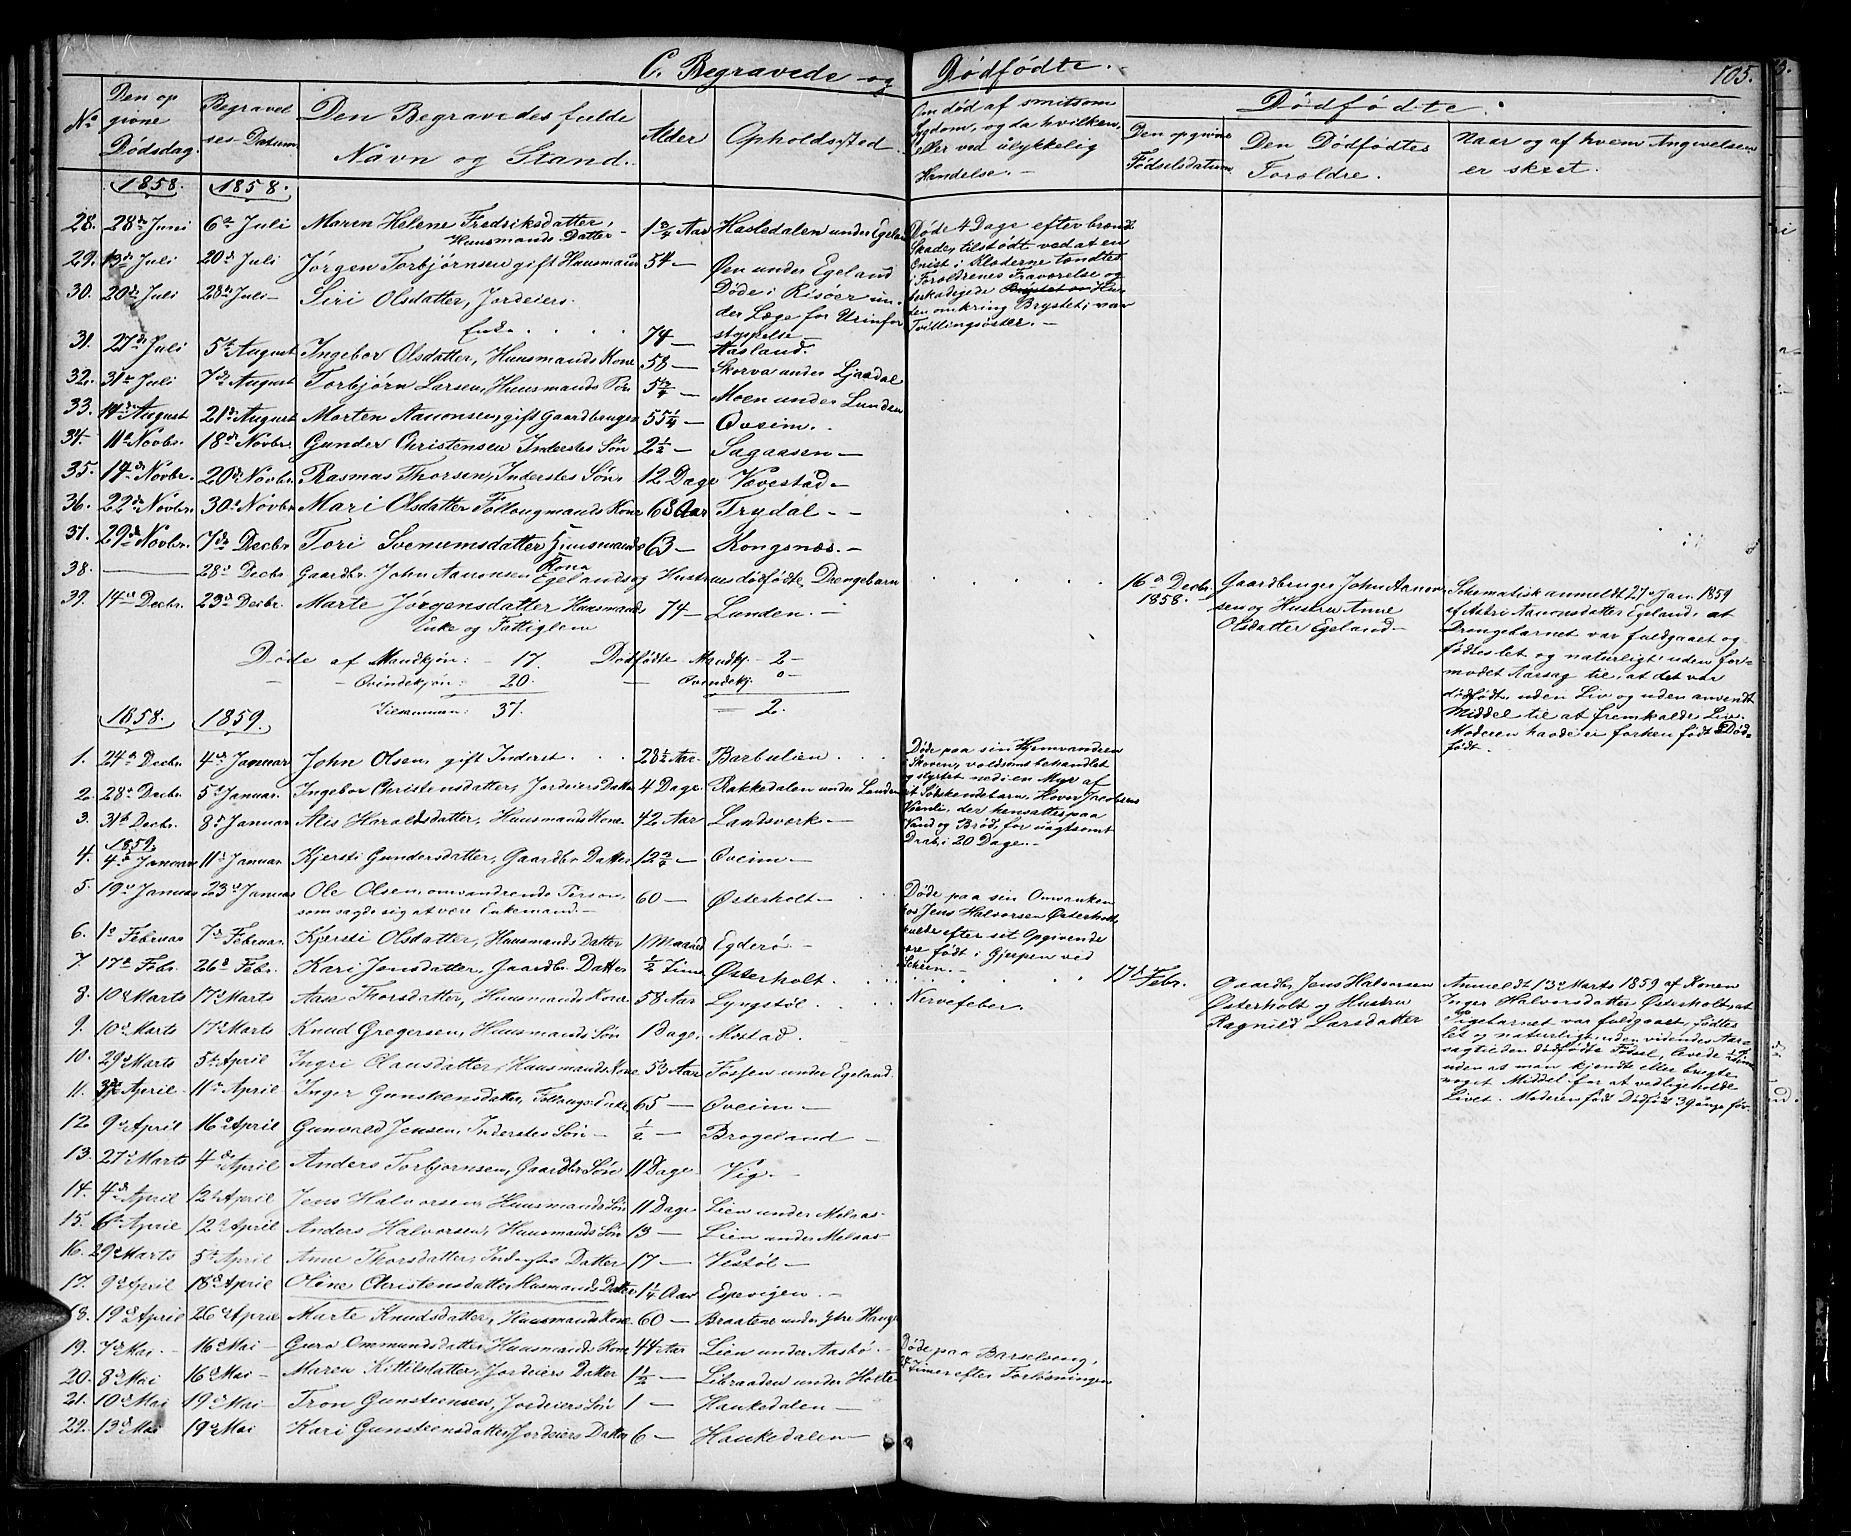 C. Begravede og Dødfødte. 105.
No Den opgivne Dødsdag. Begravelses Datum Den Begravedes fulde Navn og Stand. Alder Opholdssted. Om død af smitsom Sygdom, og da hvilken, eller ved ulykkelig Hændelse. Dødfødte. Den opgivne Fødselsdatum Den Dødfødtes Forældre. Naar og af hvem Angivelsen er skeet.
1858. 1858.
28. 28de Juni 6te Juli Maren Helene Fredriksdatter, Huusmands Datter 1 3/4 Aar Hasledalen under Egeland
Døde 4 Dage efter brændt
Skade, tilstødt ved at en
Gnist i Klæderne tændtes
i Forældrenes Fraværelse og
beskadigede Huden omkring Brystet; var
Tvillingsøster.
29. 13de Juli 20de Juli Jørgen Torbjørnsen gift Huusmand 54 Øen under Egeland
30. 20de Juli 28de Juli Siri Olsdatter, Jordeiers Enke 74 Døde i Risøer under Læge for Urinforstoppelse Aasland.
31. 27de Juli 5te August Ingebor Olsdatter, Huusmands Kone 58 Skorva under Ljaadal
32. 31te Juli 7de August Torbjørn Larsen, Huusmands 5 3/4 Moen under Lunden
33. 14de August 21de August Morten Aanonsen, gift Gaardbruger 55 1/4 Øveim.
34. 11te Novbr. 18de Novbr. Gunder Christensen Inderstes Søn 2 1/2 Sagaasen
35. 14de Novbr. 20de Novbr. Rasmas Thorsen, Inderstes Søn 12 Dage Vævestad
36. 22de Novbr. 30te Novbr. Mari Olsdatter Føllougmands Kone 68 Aar Trydal
37. 29de Novbr. 7de Decbr. Tori Svenumsdatter Huusmands Kone 63 Kongsnæs.
38. 28de Decbr. Gaardbr. John Aanonsen Egelands og Hustrues dødfødte Drengebarn
16de Decbr. 1858. Gaardbruger John Aanonsen og Hustru Anne Olsdatter Egeland
Schematisk anmeldt 27de Jan. 1859
af Aanonsdatter Egeland, at
Drengebarnet var fuldgaaet og
fødtes let og naturligt, uden formodet Aarsag til, at det var
dødfødt, uden Liv og uden anvendt
Middel til at fremkalde Liv.
Moderen havde ei forhen født Dødfødt.
39. 14de Decbr. 23de Decbr. Marte Jørgensdatter Huusmands Enke og Fattiglem 74 Lunden.
Døde af Mandkjøn: 17. Dødfødte Mandkj. 2
Qvindekjøn: 20. Qvindekj. 0
Tilsammen: 37. 2.
1858. 1859.
1. 24de Decbr. 4de Januar John Olsen, gift Inderst 28 1/2 Aar Barbulien.
Døde paa sin Hjemvandren
i Skoven, voldsomt behandlet
og styrtet ned i en Myr af
et Søskendebarn, Hover Jacobsen
der hensattes paa
Vand og Brød, for uagtsomt
Drab i 20 Dage.
2. 28de Decbr. 5te Januar. Ingebor Christensdatter, Jordeiers Datter 4 Dage Rakkedalen under Lunden
3. 31te Decbr. 8de Januar Alis Haraldsdatter, Huusmands Kone 42 Aar Landsverk
1859
4. 4de Januar 11te Januar Kjersti Gundersdatter, Gaardbr. Datter 12 3/4 Øveim
5. 19de Januar 23de Januar Ole Olsen, omvandrende Person, som sagde sig at være Enkemand. 60 Østerholt
Døde paa sin Omvanken
hos Jens Halvorsen Østerholt,
skulde efter sit Opgivende
være født i Gjerpen ved
Skien.
6. 1ste Februar 7de Februar. Kjersti Olsdatter, Huusmands Datter 1 Maaned Egderø
7. 17de Febr. 26de Febr. Kari Jensdatter, Gaardbr. Datter 1/2 Time Østerholt.
17de Febr. Gaardbr. Jens Halvorsen Østerholt og Hustru Ragnild Larsdatter
Anmeldt 13de Marts 1859 af Konen
Inger Halvorsdatter Østerholt, at
Pigebarnet var fuldgaaet, fødtes
let og naturligt, uden videndes Aarsag til den dødfødte Fødsel, levede 1/2 Time
uden at man kjendte eller brugte
noget Middel for at vedligeholde
Livet. Moderen født Dødfødt 3 Gange før.
8. 10de Marts 17de Marts Aase Thorsdatter, Huusmands Kone 58 Aar Lyngstøl. Nervefeber.
9. 10de Marts 17de Marts Knud Gregersen, Huusmands Søn 1 Dage Mostad.
10. 29de Marts 5te April Ingri Olausdatter, Huusmands Kone 53 Aar Fossen under Egeland.
11. April 11te April Inger Gunsteensdatter, Føllougs Enke 65 Øveim
12. 9de April 16de April Gunvald Jensen, Inderstes Søn 1/2 Brogeland
13. 27de Marts 4de April Anders Torbjørnsen, Gaardbr. Søn 11 Dage Vig.
14. 4de April 12te April Jens Halvorsen, Huusmands Søn 11 Dage Lien under Melaas
15. 6te April 12te April Anders Halvorsen, Huusmands Søn 13 Lien under Melaas
16. 29de Marts 5te April Anne Thorsdatter, Inderstes Datter 17 Vestøl
17. 9de April 18de April Oline Christensdatter Husmands Datter 1 1/4 Aar Espevigen.
18. 19de April 26de April Marte Knudsdatter, Huusmands Kone 60 Braatene under Ytre Hauge
19. 7de Mai. 16de Mai Guro Ommundsdatter Huusmands Kone 44 Aar Lien under Aasbø.
Døde paa Barselseng,
Timer efter Forløsningen
20. 8de Mai 16de Mai Maren Kittilsdatter, Jordeiers Datter 1 1/2 Libraaden under Holte
21. 10de Mai 19de Mai Tron Gunsteensen, Jordeiers Søn 1 Haukedalen
22. 13de Mai 19de Mai Kari Gunsteensdatter, Jordeiers Datter 6 Haukedalen